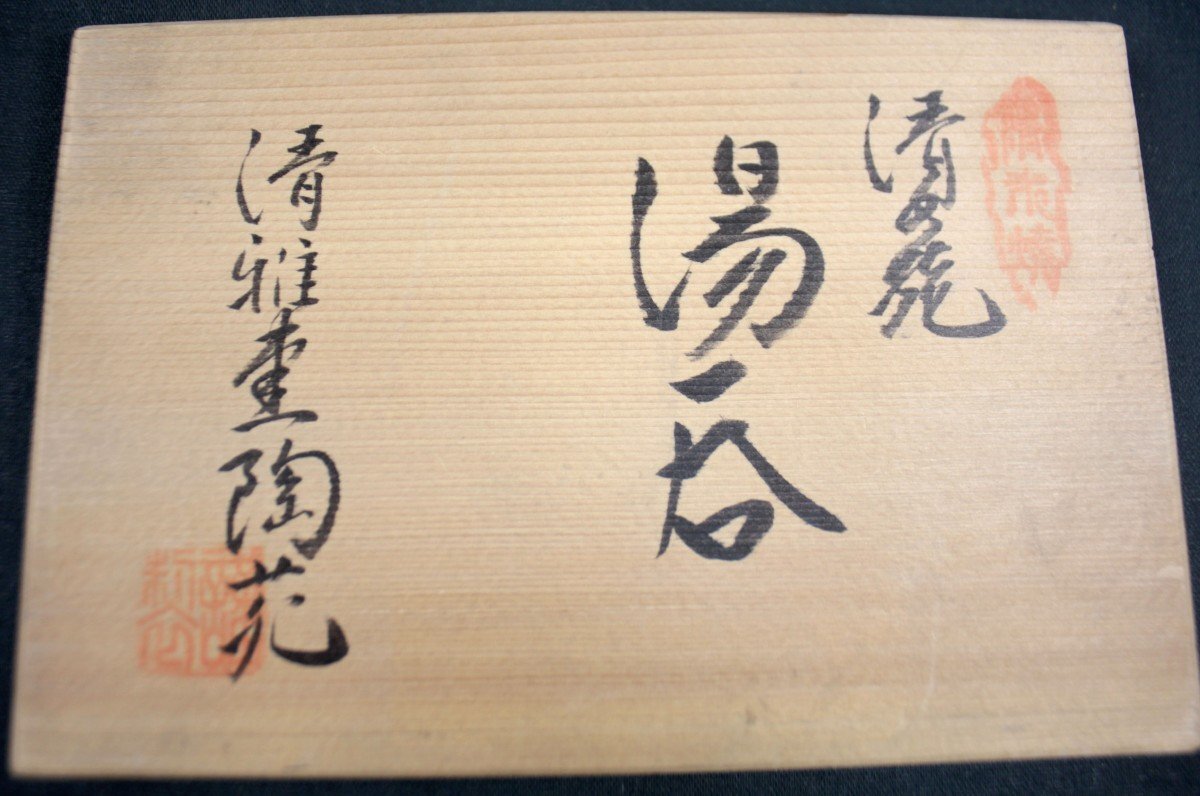 清水焼
湯呑
清雅堂陶苑